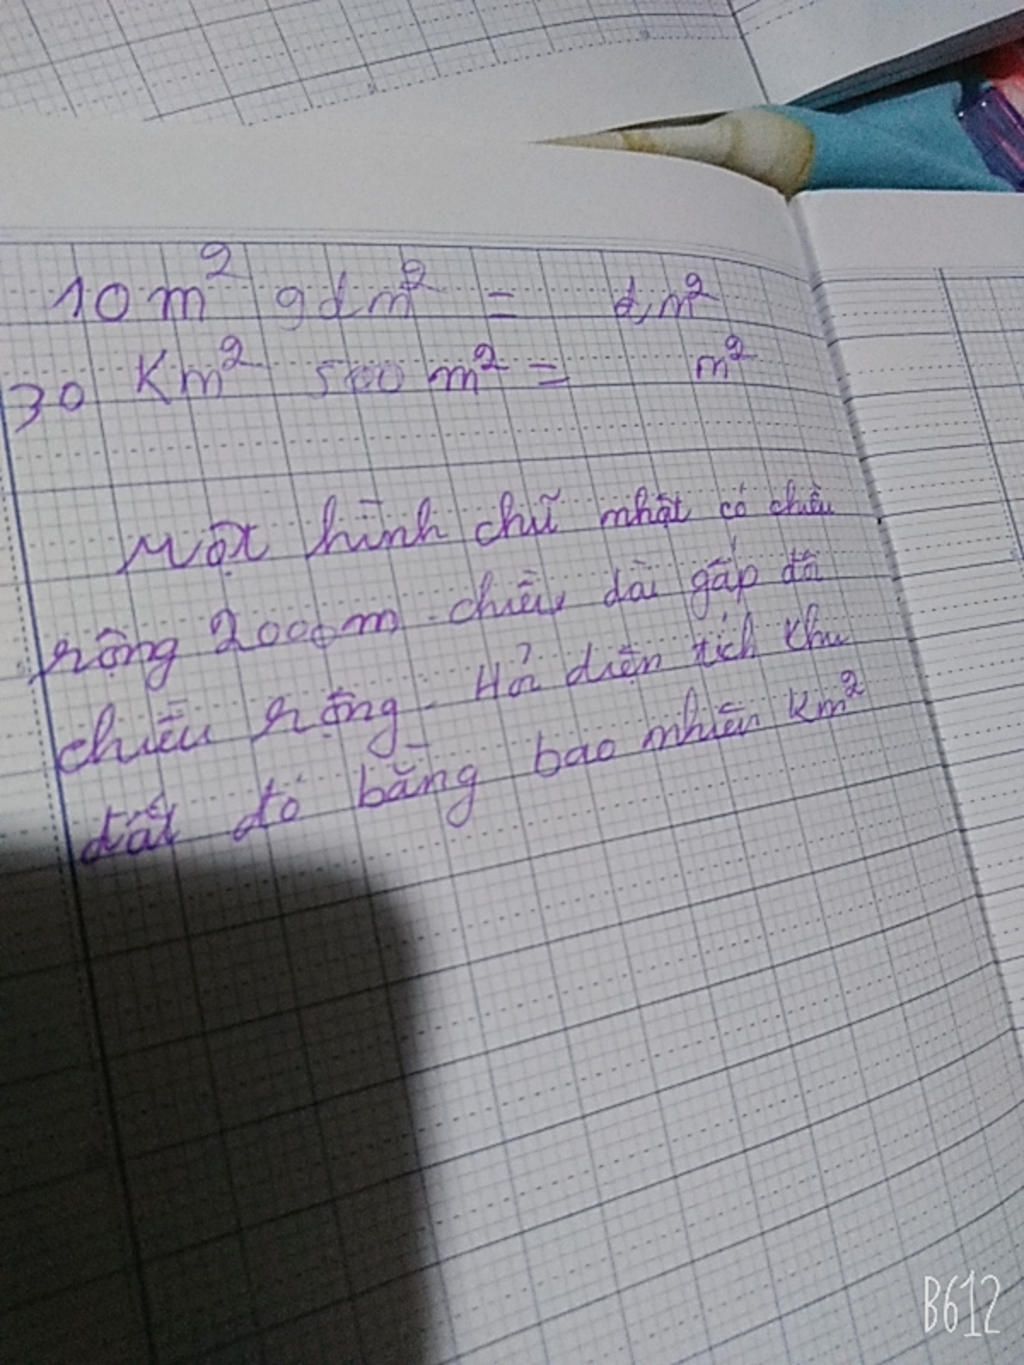 10 m² 9 dm² = dm²
30 Km² 500 m² = m²
Một hình chữ nhật có chiều
rộng 2000m. chiều dài gấp đôi
chiều rộng. Hỏi diện tích khu
đất đó bằng bao nhiêu Km²
B612